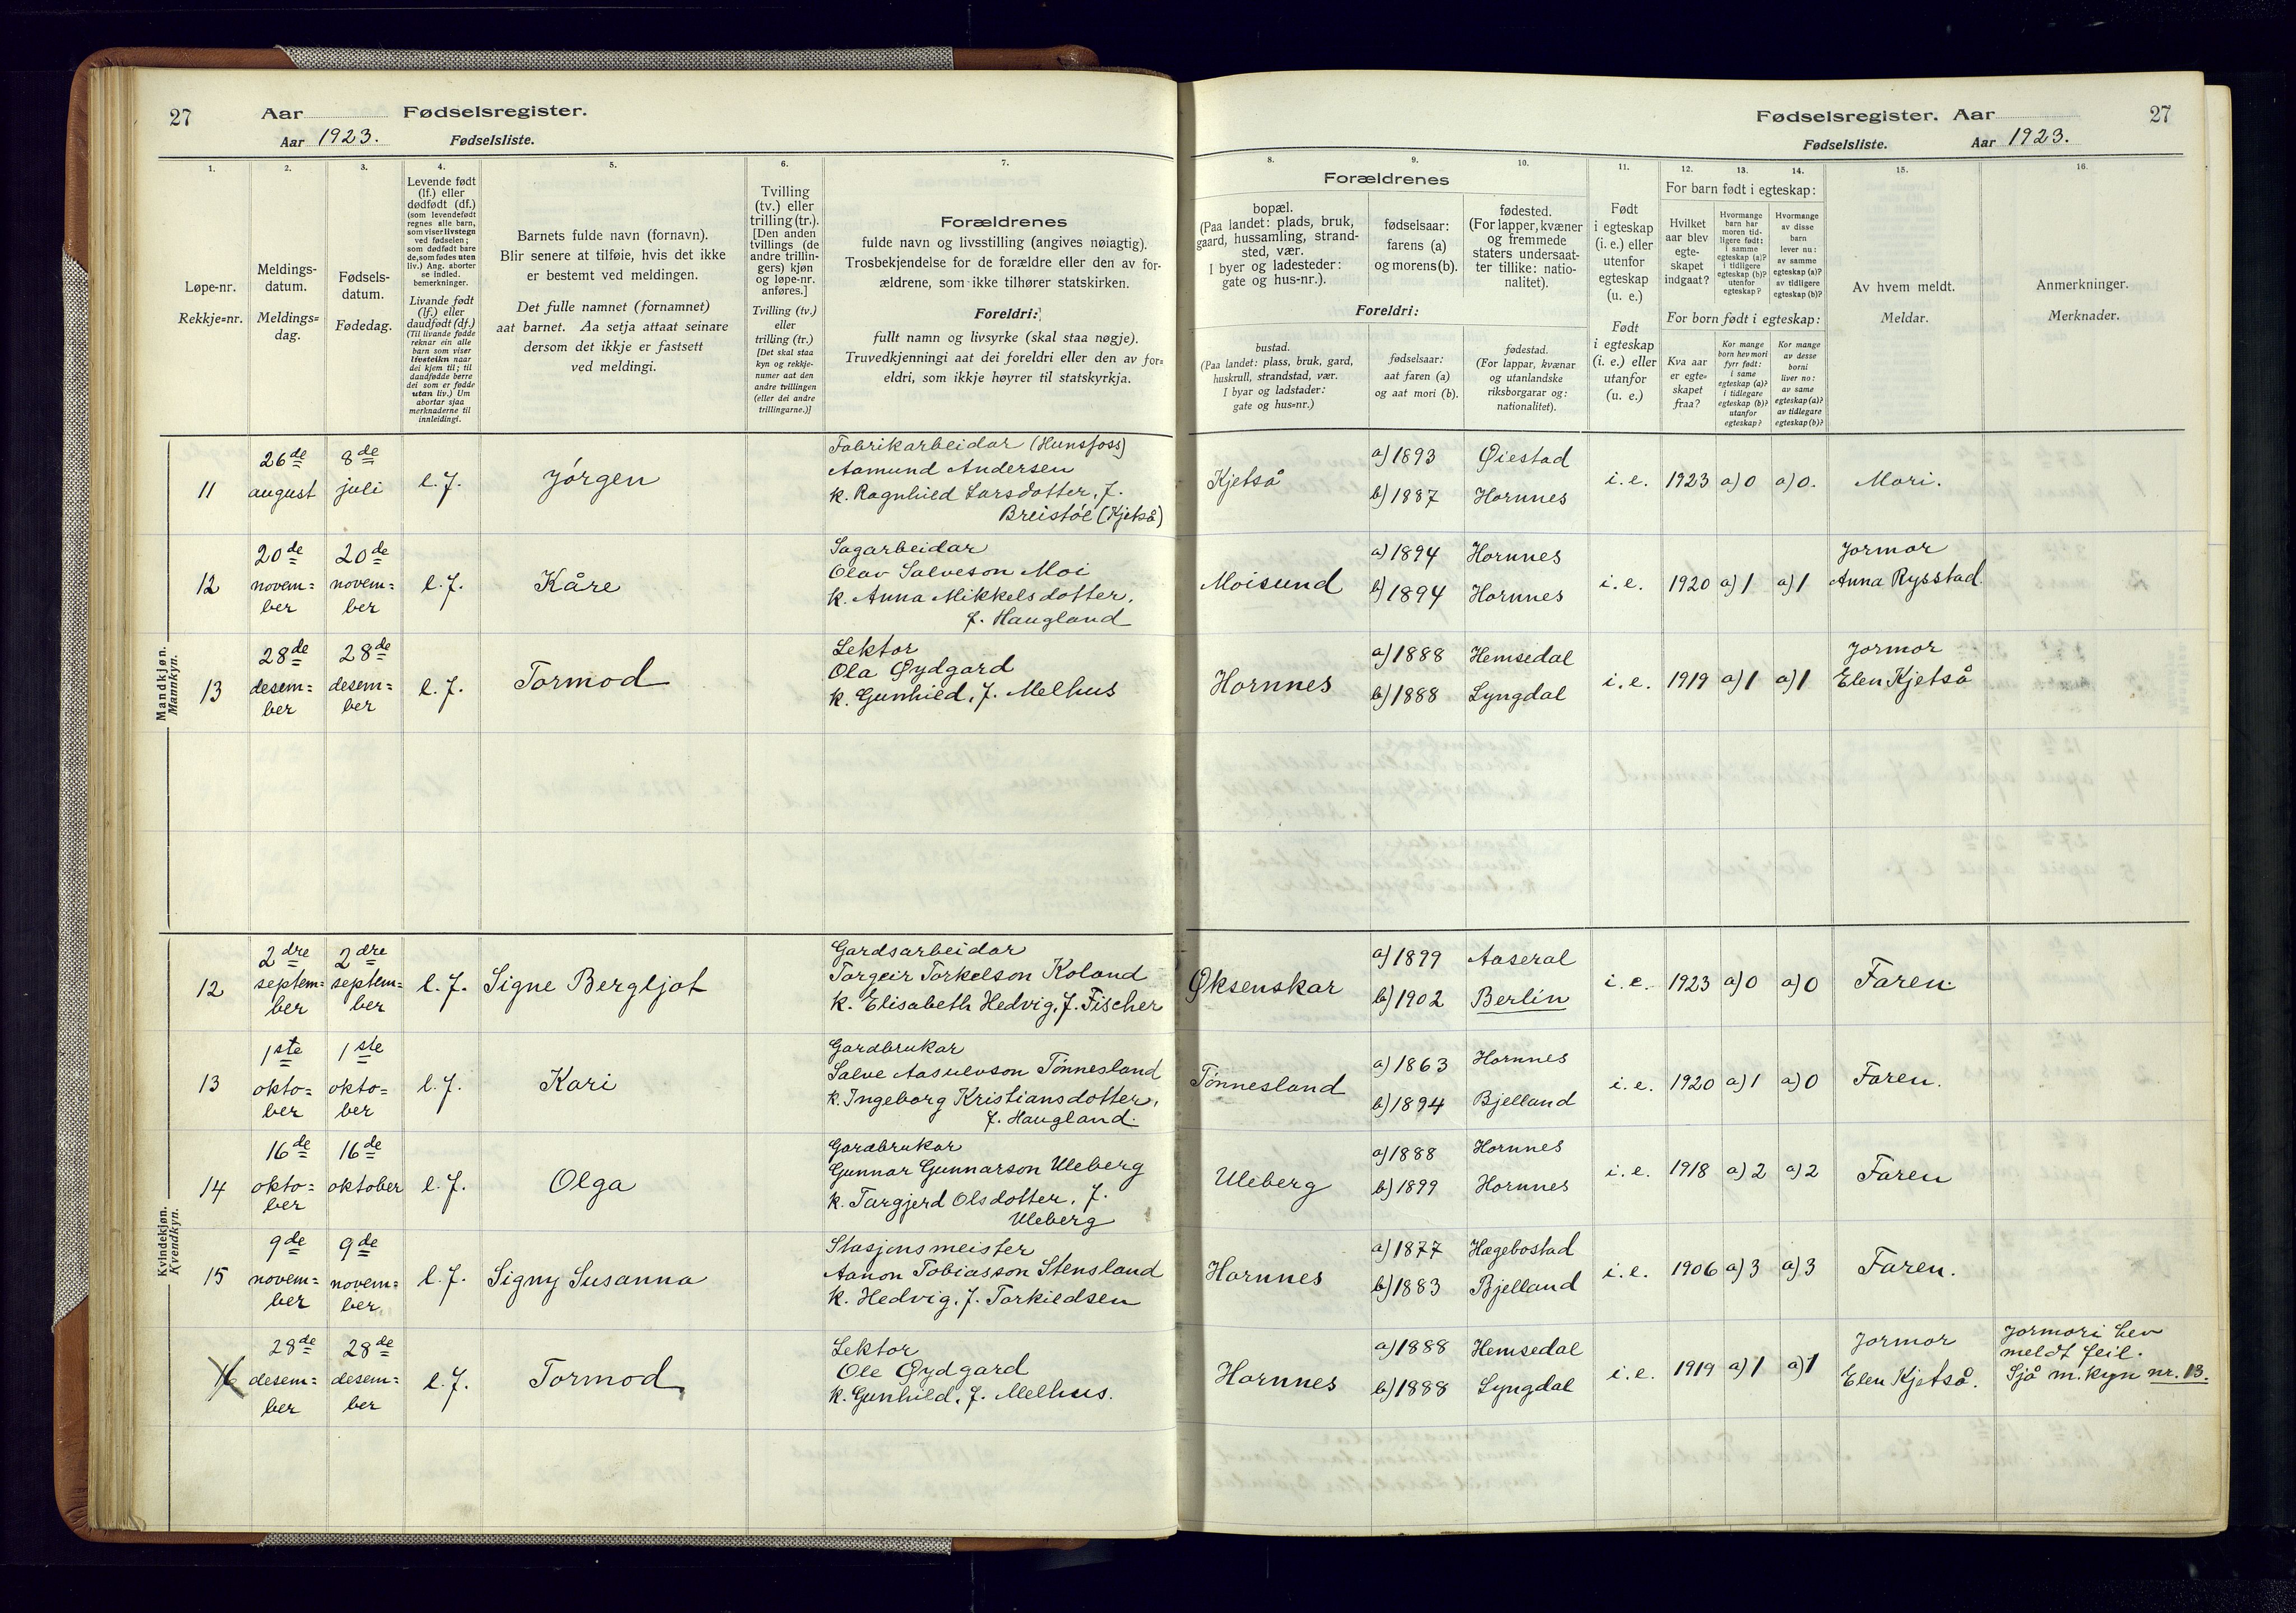 27
Aar
Fødselsregister.
Aar 1923.
Fødselsliste.
1.
2.
3.
4.
5.
6.
7.
Løpe-nr.
Rekkje=nr.
Meldings-
datum.
Meldings=
dag.
Fødsels-
datum.
Fødedag.
Levende født
(lf.) eller
dødfødt (df.)
(som levendefødt
regnes alle barn,
som viser livstegn
ved fødselen;
som dødfødt bare
de, som fødes uten
liv.) Ang. aborter
se indled.
bemerkninger.
Livande født
(lf.) eller
daudfødt (df.)
(Til livande fødde
reknar ein alle
barn som viser
livsteikn naar
dei kjem til; til
daudfødde berre
dei som er fødde
utan liv.) Um
abortar sjaa
merknaderne til
innleidingi.
Barnets fulde navn (fornavn).
Blir senere at tilføie, hvis det ikke
er bestemt ved meldingen.
Det fulle namnet (fornamnet)
aat barnet. Aa setja attaat seinare
dersom det ikkje er fastsett
ved meldingi.
Tvilling
(tv.) eller
trilling (tr.).
[Den anden
tvillings (de
andre trillin-
gers) kjøn
og løpe-nr.
anføres.]
Tvilling (tv.)
eller
trilling (tr.)
[Det skal staa
kyn og rekkje-
numer aat den
andre tvillingen
(eller dei andre
trillingarne.)]
Forældrenes
fulde navn og livsstilling (angives nøiagtig).
Trosbekjendelse for de forældre eller den av for-
ældrene, som ikke tilhører statskirken.
Foreldri:
fullt namn og livsyrke (skal staa nøgje).
Truvedkjenningi aat dei foreldri eller den av for=
eldri, som ikkje høyrer til statskyrkja.
Mandkjøn.
Mannkyn.
11
26de
august
8de
juli
l. f.
Jörgen
Fabrikarbeidar (Hunsfoss)
Aamund Andersen
k. Ragnhild Larsdotter, f.
Breistöl (Kjetså)
12
20de
novem=
ber
20de
novem=
ber
l. f.
Kåre
Sagarbeidar
Olav Salveson Moi
k. Anna Mikkelsdotter,
f. Haugland
13
28de
desem=
ber
28de
desem=
ber
l. f.
Tormod
Lektor
Ola Øydgard
k. Gunhild, f. Melhus
Kvindekjøn.
Kvendkyn.
12
2dre
septem=
ber
2dre
septem=
ber
l. f.
Signe Bergljot
Gardsarbeidar
Torgeir Torkelson Koland
k. Elisabeth Hedvig, f. Fischer
13
1ste
okto=
ber
1ste
okto=
ber
l. f.
Kari
Gardbrukar
Salve Aasulvson Tönnesland
k. Ingeborg Kristiansdotter,
f. Haugland.
14
16de
okto=
ber
16de
oktober
l. f.
Olga
Gardbrukar
Gunnar Gunnarson Uleberg
k. Targjerd Olsdotter, f.
Uleberg
15
9de
novem=
ber
9de
novem=
ber
l. f.
Signy Susanna
Stasjonsmeister
Aanon Tobiasson Stensland
k. Hedvig, f. Torkildsen
16
28de
desem=
ber
28de
desem=
ber
l. f.
Tormod
Lektor
Ole Øydgard
k. Gunhild, f. Melhus.
Fødselsregister. Aar
27
Fødselsliste.
Aar 1923.
8.
9.
10.
11.
12.
13.
14.
15.
16.
Forældrenes
bopæl.
(Paa landet: plads, bruk,
gaard, hussamling, strand-
sted, vær.
I byer og ladesteder:
gate og hus-nr.).
fødselsaar:
farens (a)
og morens (b).
fødested.
(For lapper, kvæner
og fremmede
staters undersaat-
ter tillike: natio-
nalitet).
Foreldri:
bustad.
(Paa landet: plass, bruk, gard,
huskrull, strandstad, vær.
I byar og ladstader:
gate og hus=nr.)
fødselsaar:
aat faren (a)
og aat mori (b).
fødestad.
(For lappar, kvænar
og utanlandske
riksborgarar og:
nationalitet).
Født
i egteskap
(i. e.) eller
utenfor
egteskap
(u. e.)
Født
i egteskap
(i. e.) eller
utanfor
(u. e.)
For barn født i egteskap:
Hvilket
aar blev
egte-
skapet
indgaat?
Hvormange
barn har
moren tid-
ligere født:
i samme
egteskap (a)?
i tidligere
egteskap (b)?
utenfor
egteskap?
Hvormange
av disse
barn
lever nu:
av samme
egteskap (a)?
av tidligere
egteskap (b)?
For born født i egteskap:
Kva aar
er egte=
skapet
fraa?
Kor mange
born hev mori
fyrr født:
i same
egteskap (a)?
i tidlegare
egteskap (b)?
utanfor
egteskap?
Kor mange
av desse
borni
liver no:
av same
egteskap (a)?
av tidlegare
egteskap (b)?
Av hvem meldt.
Meldar.
Anmerkninger.
Merknader.
Kjetså
a) 1893
b) 1887
Øiestad
Hornnes
i. e.
1923
a) 0
a) 0.
Mori.
Moisund
a) 1894
b) 1894
Hornnes
Hornnes
i. e.
1920
a) 1
a) 1
Jormor
Anna Rysstad
Hornnes
a) 1888
b) 1888
Hemsedal
Lyngdal
i. e.
1919
a) 1
a) 1
Jormor
Elen Kjetså
Øksenskar
a) 1899
b) 1902
Aaseral
Berlin
i. e.
1923
a) 0
a) 0
Faren.
Tönnesland
a) 1863
b) 1894
Hornnes
Bjelland
i. e.
1920
a) 1
a) 0
Faren.
Uleberg
a) 1888
b) 1899
Hornnes
Hornnes
i. e.
1918
a) 2
a) 2
Faren
Hornnes
a) 1877
b) 1883
Hægebostad
Bjelland
i. e.
1906
a) 3
a) 3
Faren.
Hornnes
a) 1888
b) 1888
Hemsedal
Lyngdal
i. e.
1919
a) 1
a) 1
Jormor
Elen Kjetså.
Jormori hev
meldt feil.
Sjå m. kyn nr. 13.